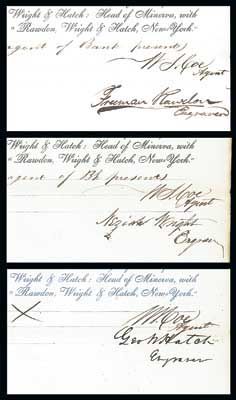 Wright & Hatch: Head of Minerva, with
"Rawdon, Wright & Hatch, New-York."
agent of Bank presents
W S Coe
Agent
Freeman Rawdon
Engraver
Wright & Hatch: Head of Minerva, with
"Rawdon, Wright & Hatch, New-York."
agent of Bk presents
W S Coe
Agent
Neziah Wright
Engraver
Wright & Hatch: Head of Minerva, with
"Rawdon, Wright & Hatch, New-York."
X
Coe
Agent
Geo W Hatch
Engraver